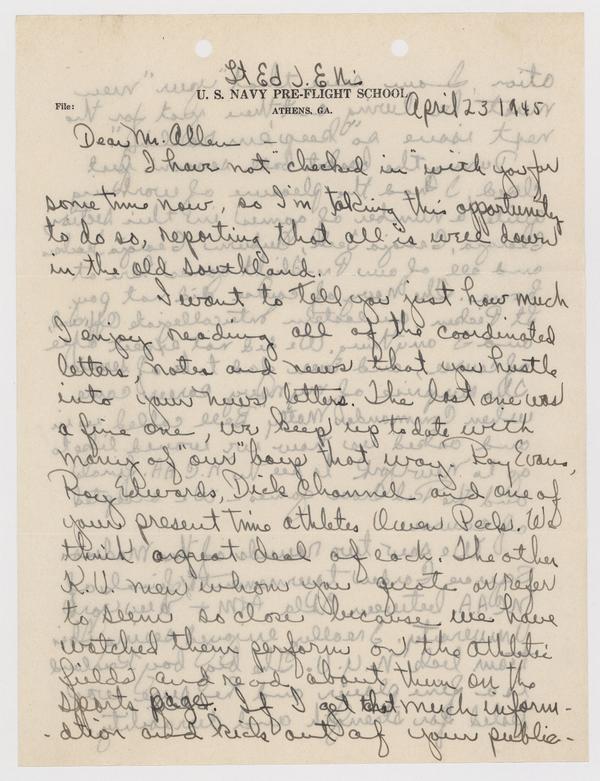 Lt Ed J. Ellis
U. S. NAVY PRE-FLIGHT SCHOOL
File:
ATHENS, GA.
April 23 1945
Dear Mr. Allen -
I have not "checked in" with you for
some time now, so I'm taking this opportunity
to do so, reporting that all is well down
in the old southland.
I want to tell you just how much
I enjoy reading all of the coordinated
letters, notes and news that you hustle
into your news letters. The last one was
a fine one, we keep up to date with
many of "our" boys that way. Ray Evans,
Roy Edwards, Dick Channel and one of
your present time athletes Owen Peck. We
think a great deal of each. The other
K.U. men whom you quote or refer
to seem so close because we have
watched them perform on the athletic
fields and read about them on the
sports pages. If I get that much inform-
-ation and kick out of your public-